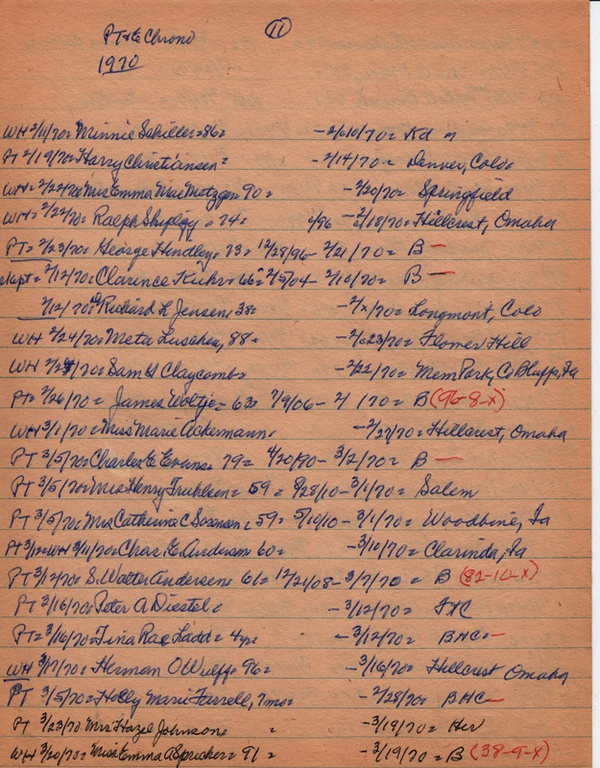 PT & E Chrono
11
1970
WH 2/11/70= Minnie Schiller= 86= -2/10/70= Kd
PT 2/19/70= Harry Christiansen= -2/14/70= Denver, Colo.
WH= 2/22/70= Mrs Emma Mae Metzger 90= -2/20/70= Springfield
WH= 2/22/70= Ralph Shipley = 74= 1/96 -2/18/70= Hillcrest, Omaha
PT= 2/23/70= George Hindley= 73= 12/28/96- 2/21/70= B -
2/12/70= Clarence Kuhr= 66= 2/5/04- 2/10/70= B -
2/12/70= Richard L Jensen= 38= -2/x/70= Longmont, Colo
WH 2/24/70= Meta 88= -2/23/70= Flower Hill
WH 2/24/70= Sam H Claycomb= -2/22/70= Mem Park, Co Bluffs, Ia
PT= 2/26/70= James Woltje= 63= 7/9/06- 2/ /70= B (96-8-x)
WH 3/1/70= Miss Marie Ackermann= -2/27/70= Hillcrest, Omaha
PT 3/5/70= Charles E Evans= 79= 4/20/90- 3/2/70= B -
PT 3/5/70= Mrs Henry = 59= 8/28/10- 3/1/70= Salem
PT 3/5/70= Mrs Catherine C Sorensen= 59= 5/10/10- 3/1/70= Woodbine, Ia
PT 3/12= WH 3/11/70= Chas. E. Anderson 60= -3/10/70= Clarinda, Ia
PT 3/12/70= S. Walter Andersen= 61= 12/21/08- 3/7/70= B (82-10-x)
PT 3/16/70= Peter A Diestel= -3/12/70= FHC
PT= 3/16/70= Tina Rae Ladd= 4yrs -3/12/70= BHC= -
WH 3/17/70= Herman O Wulff= 96= -3/16/70= Hillcrest Omaha
PT 3/5/70= Holly Marie Farrell, 7mos= -2/28/70= BHC -
PT 3/23/70 Mrs Hazel Johnson= = -3/19/70= Her
WH 3/20/70= Miss Emma A Spreeker= 91= -3/19/70= B (38-9-x)